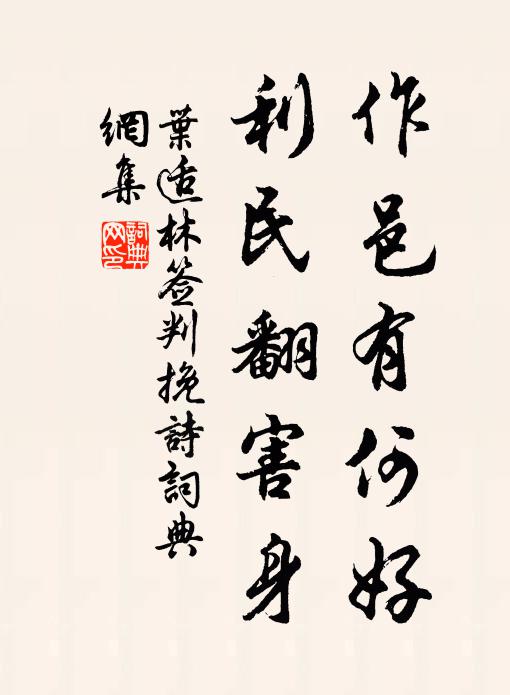 作邑有何好
利民翻害身
葉适林签判挽詩詞典
網集
詞典
网印